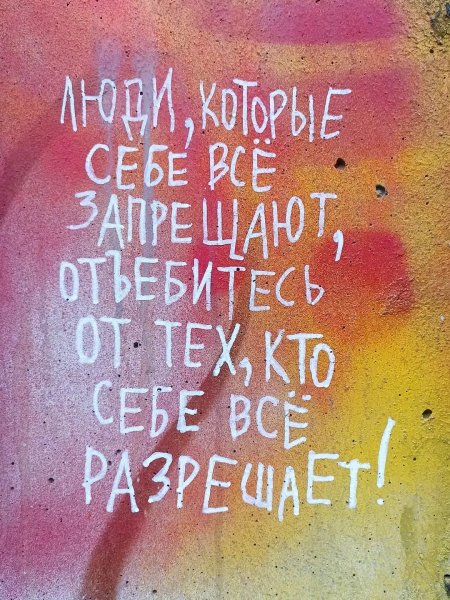 ЛЮДИ, КОТОРЫЕ
СЕБЕ ВСЁ
ЗАПРЕЩАЮТ,
ОТЪЕБИТЕСЬ
ОТ ТЕХ, КТО
СЕБЕ ВСЁ
РАЗРЕШАЕТ!